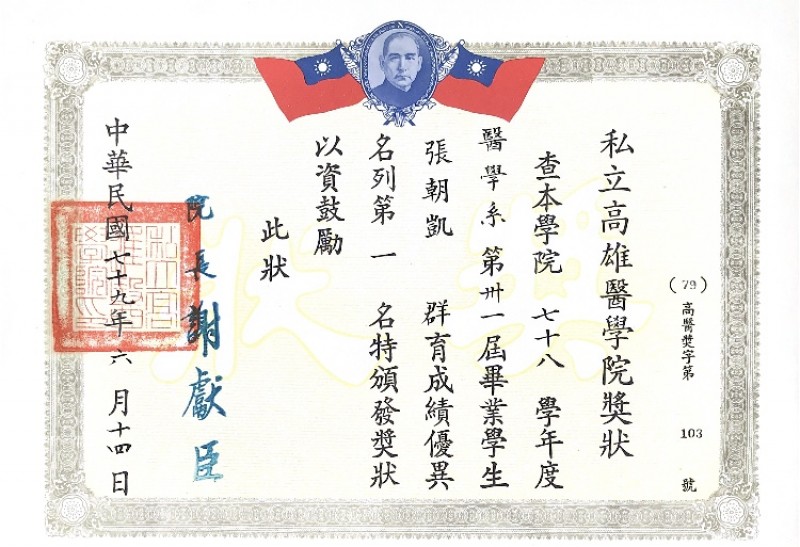 (79)高醫獎字第 103 號
私立高雄醫學院獎狀
查本學院 七十八 學年度
醫學系 第卅一屆畢業學生
張朝凱 群育成績優異
名列第 一 名特頒發獎狀
以資鼓勵
此狀
院長 謝獻臣
中華民國七十九年六月十四日
獎狀